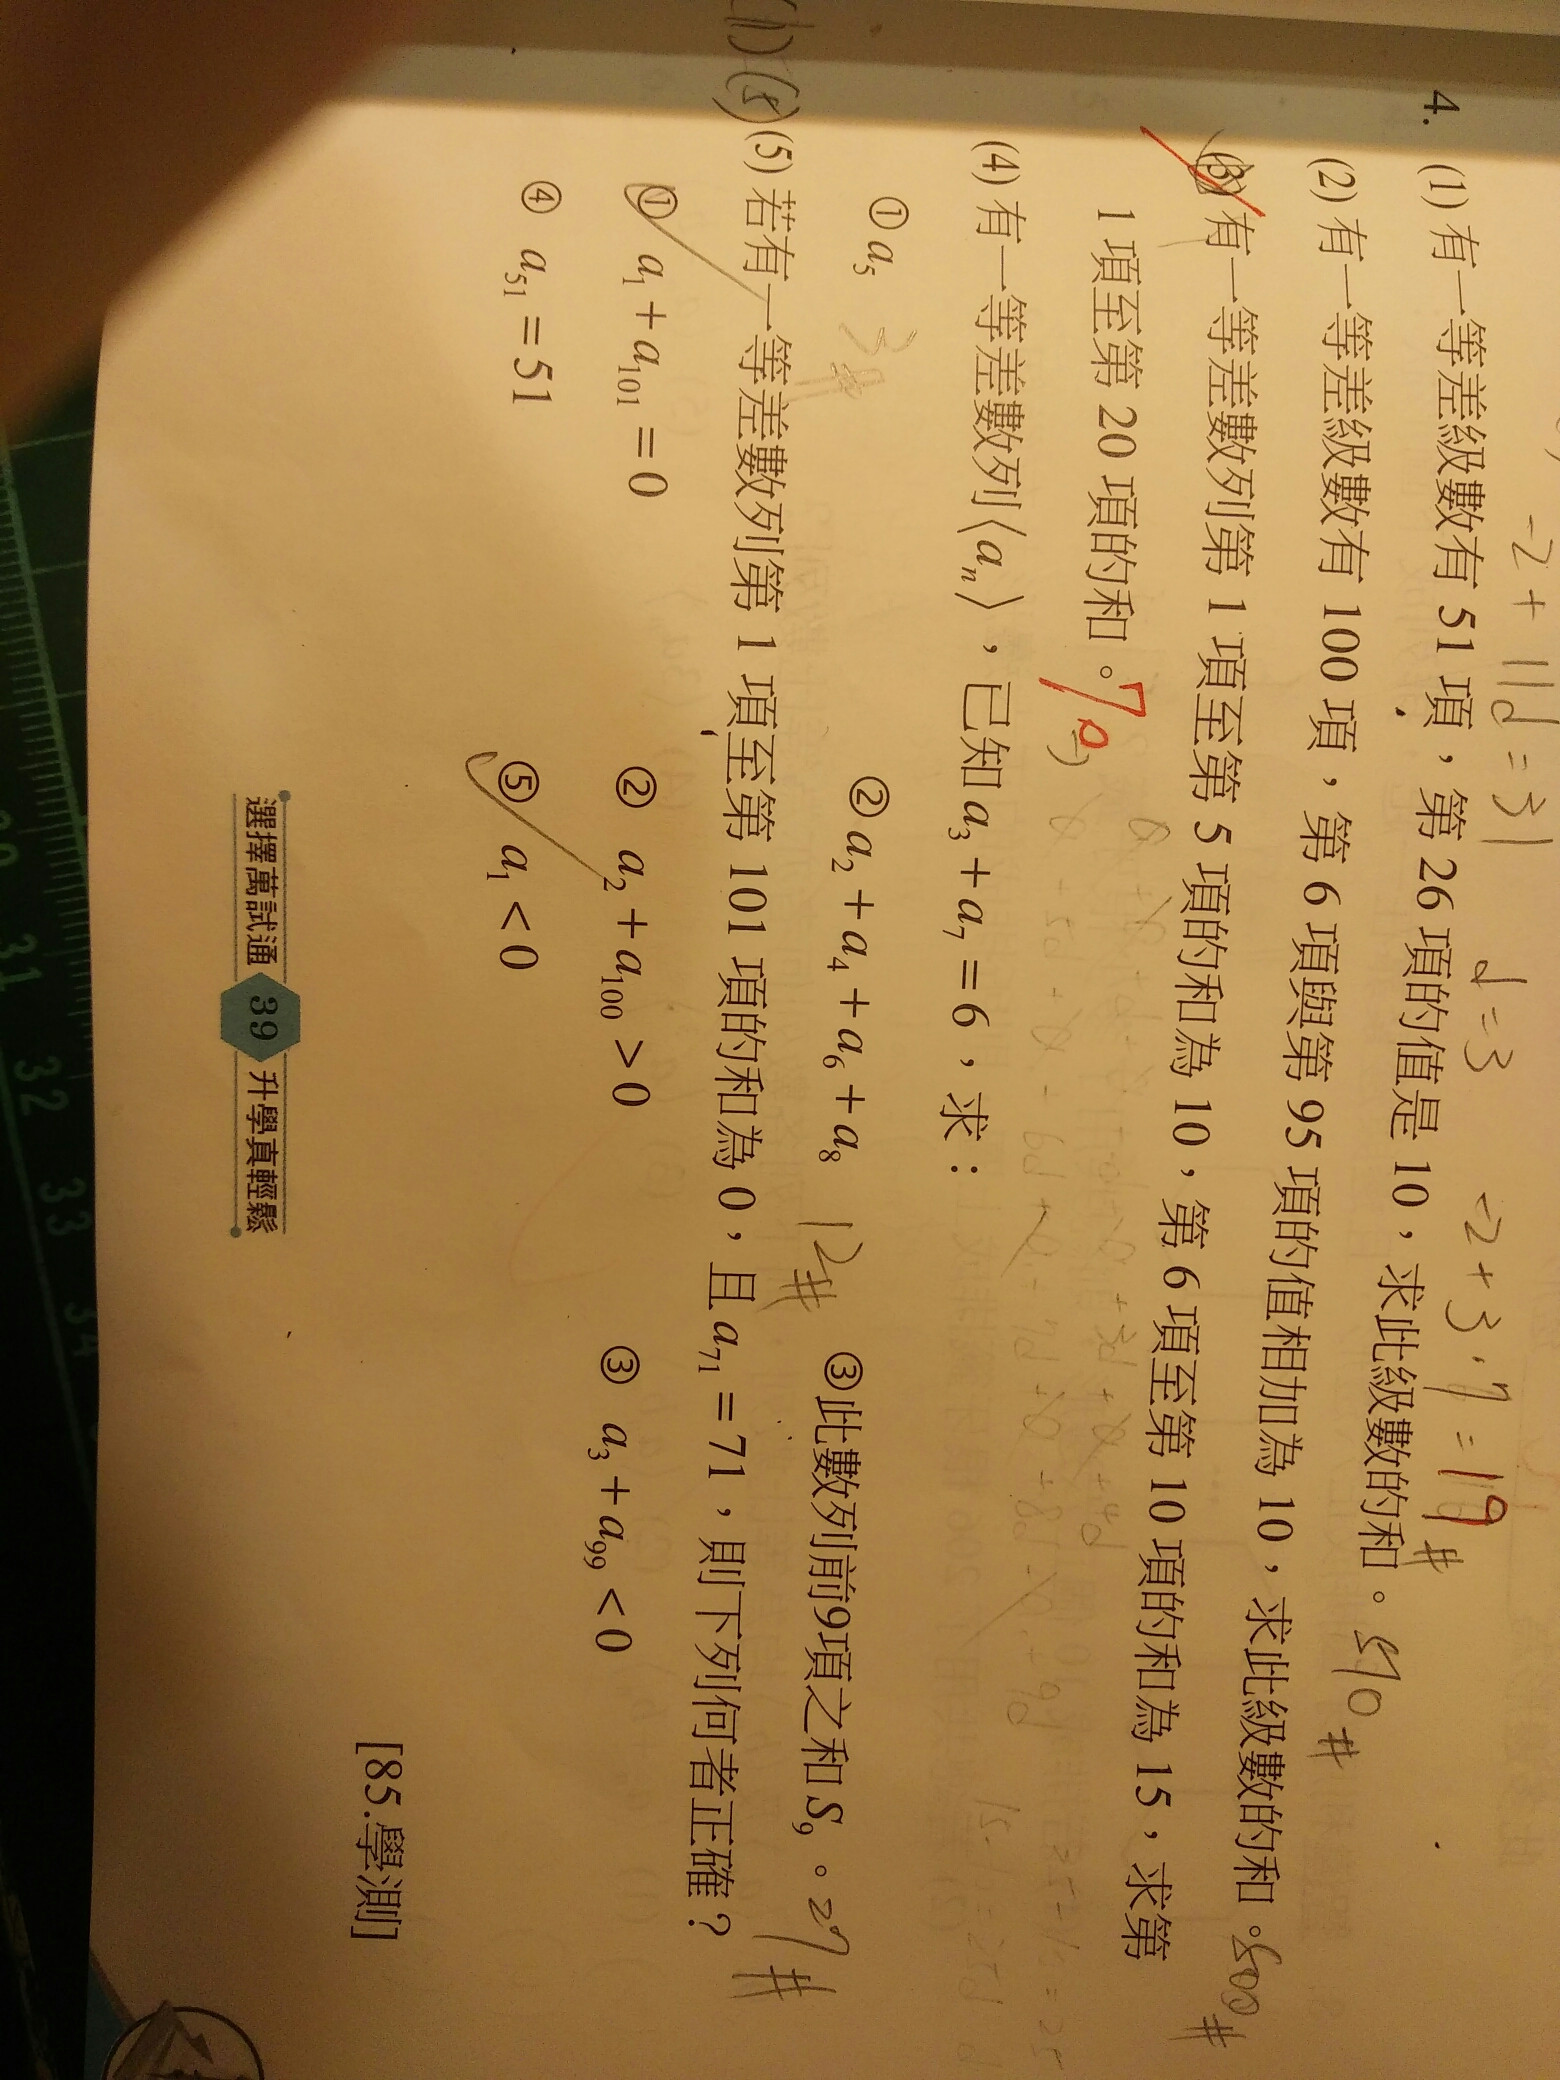 -2 + 11d = 31 d = 3 -2 + 3·7 = 19 #
4. (1) 有一等差級數有 51 項，第 26 項的值是 10，求此級數的和。510 #
(2) 有一等差級數有 100 項，第 6 項與第 95 項的值相加為 10，求此級數的和。500 #
(3) 有一等差數列第 1 項至第 5 項的和為 10，第 6 項至第 10 項的和為 15，求第
1 項至第 20 項的和。70
(4) 有一等差數列⟨aₙ⟩，已知 a₃ + a₇ = 6，求：
① a₅ 3# ② a₂ + a₄ + a₆ + a₈ 12# ③ 此數列前9項之和 S₉。27#
(1)(5) (5) 若有一等差數列第 1 項至第 101 項的和為 0，且 a₇₁ = 71，則下列何者正確？
① a₁ + a₁₀₁ = 0 ② a₂ + a₁₀₀ > 0 ③ a₃ + a₉₉ < 0
④ a₅₁ = 51 ⑤ a₁ < 0
[85.學測]
選擇萬試通 39 升學真輕鬆
31 32 33 34